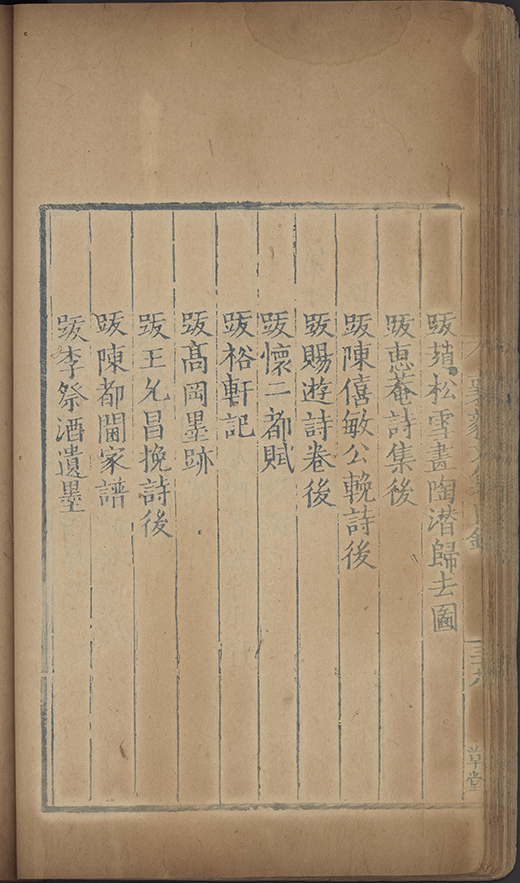 跋蘋松雪晝陶潛歸去圖
跋恵菴詩集後
跋陳僖敏公輓詩後
跋賜遊詩卷後
跋懷二都賦
跋裕軒記
跋髙岡墨跡
跋王允昌挽詩後
跋陳都閫家譜
跋李祭酒遺墨
襄毅
三九
草堂